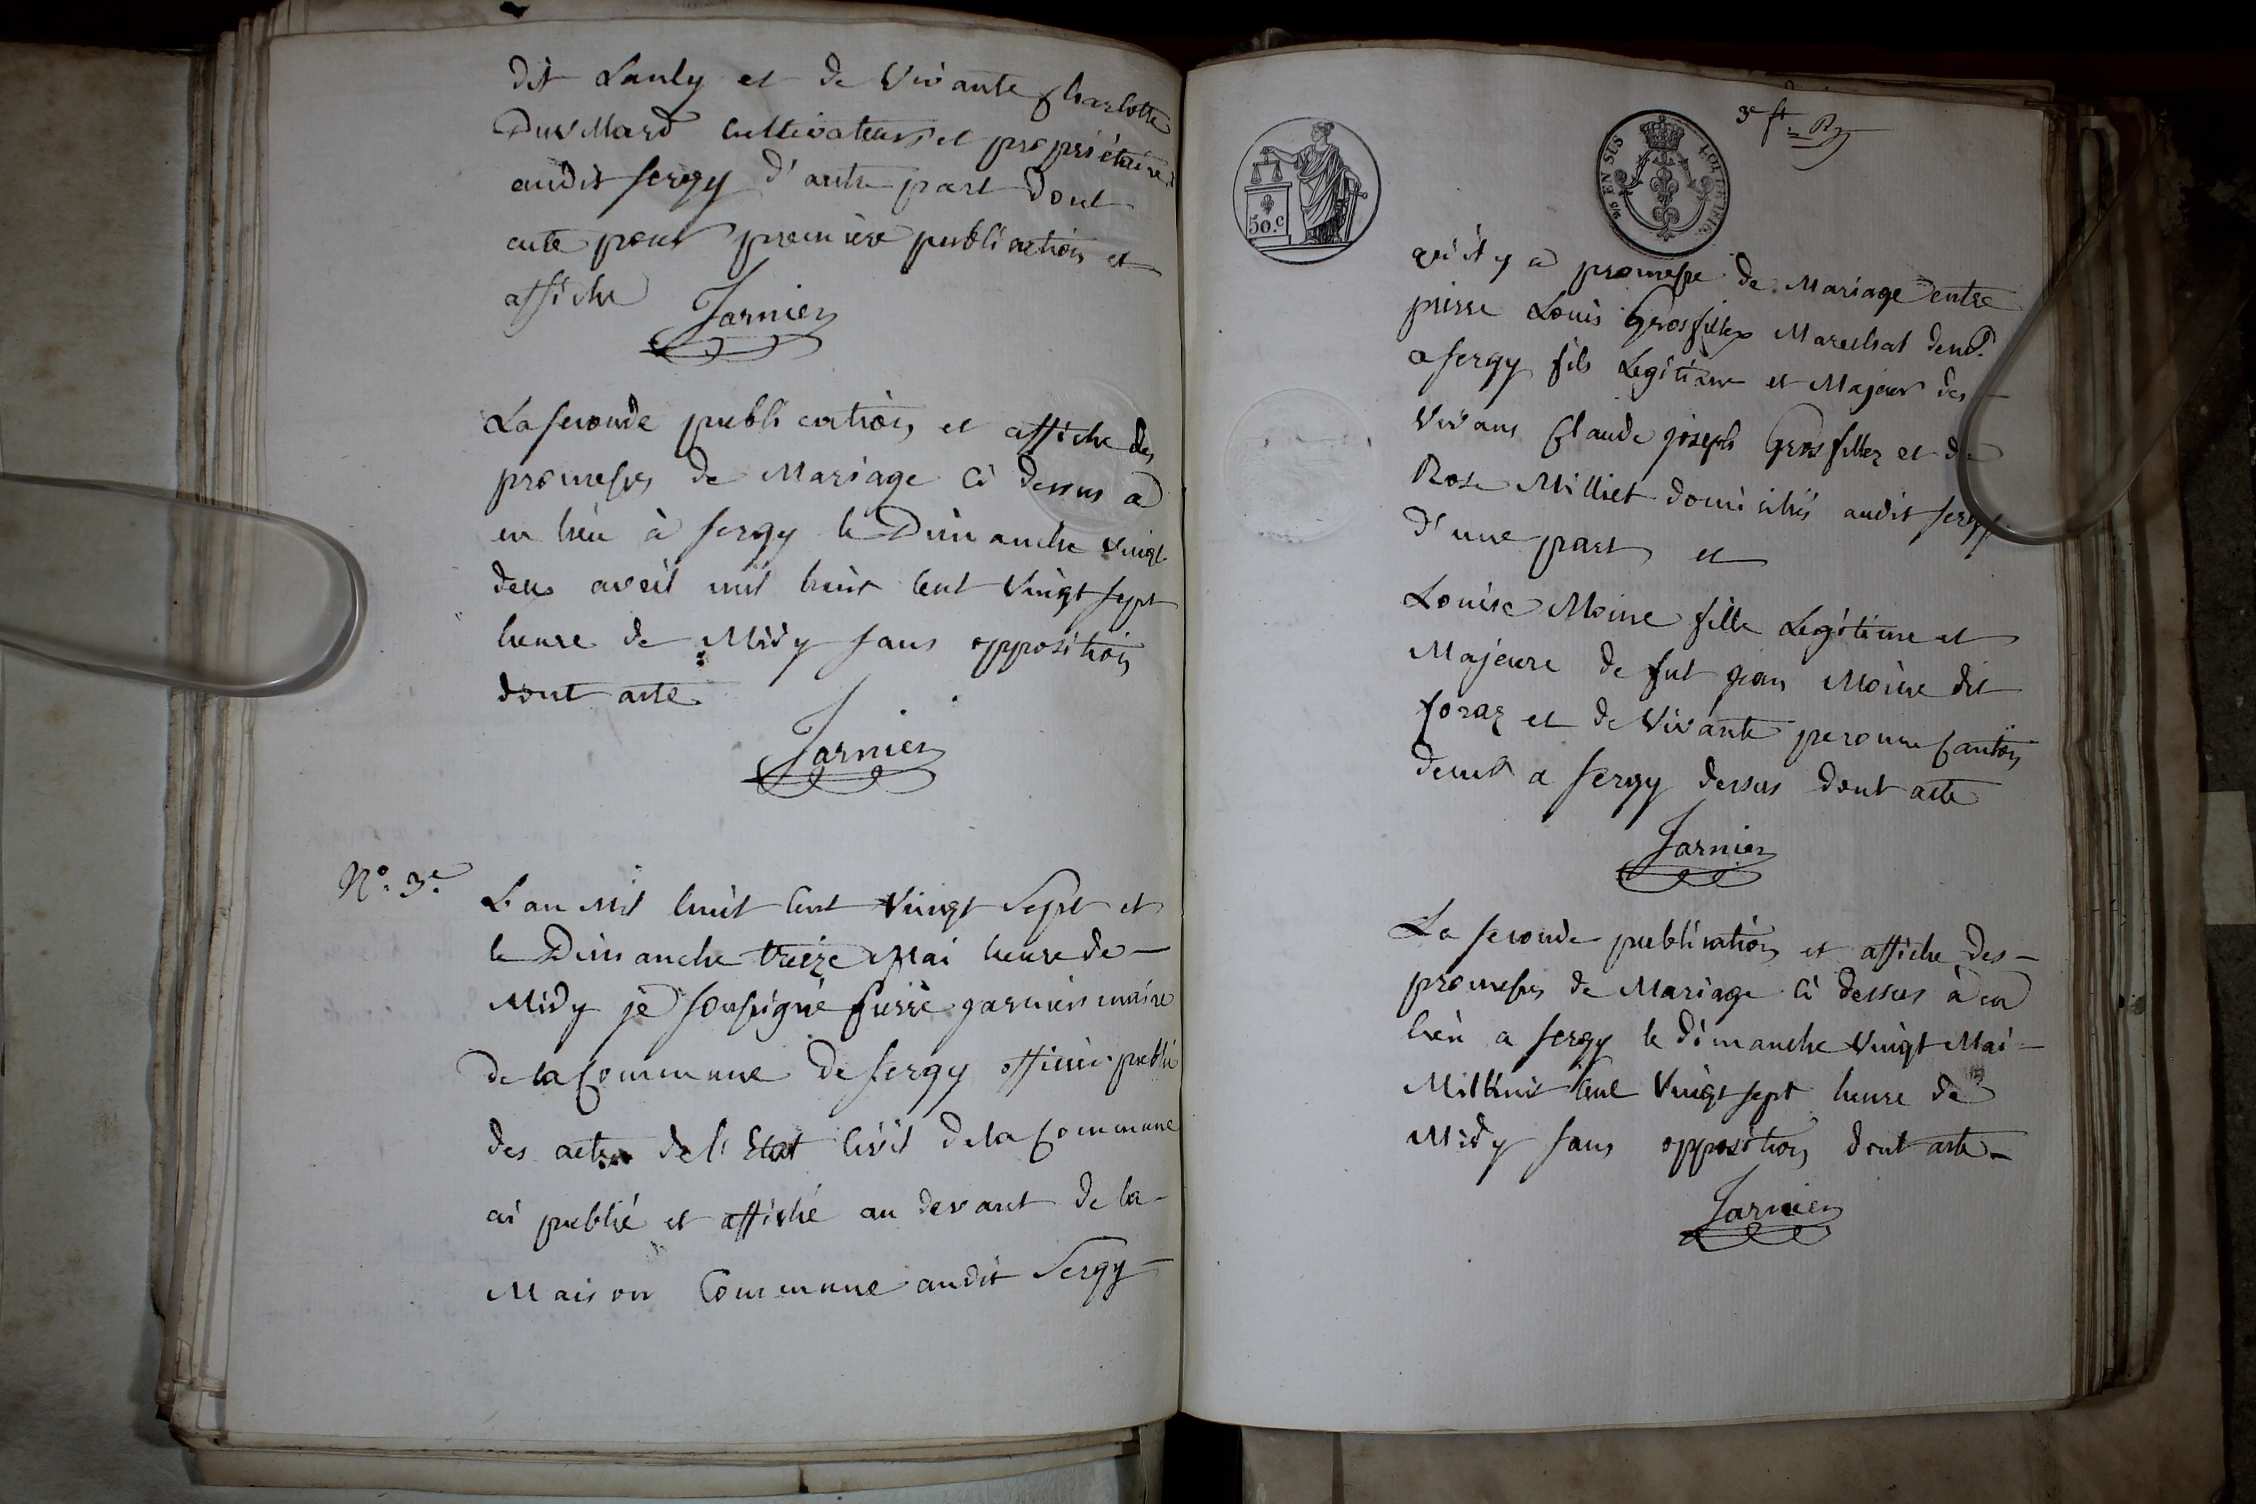 dit Lauly et de Vivante Charlotte
Duvillard cultivateurs et propriétaires
audit sergy d'autre part dont
acte pour première publication et
affiche
Jarnier
La seconde publication et affiche des
promesses de Mariage Ci dessus a
eu lieu à sergy le Dimanche vingt
deux avril mil huit Cent Vingt sept
heure de Midy sans opposition
dont acte
Jarnier
N°. 3e.
L'an Mil huit Cent Vingt Sept et
le Dimanche treize Mai heure de
Midy je sousigné pierre garnier maire
de la Commune de sergy officier public
des actes de l'Etat Civil de la Commune
ai publié et affiché au devant de la
Maison Commune audit Sergy
3e ft.
50.c
EN SUS
qu'il y a promesse de Mariage entre
pierre Louis Grosfillex Marechal demt.
a sergy fils Legitime et Majeur des
Vivans Claude joseph Grosfillex et de
Rose Milliet domiciliés audit sergy
d'une part et
Louise Moine fille Legitime et
Majeure de fut jean Moine dit
foraz et de Vivante peronne Canton
demt a sergy dessus dont acte
Jarnier
La seconde publication et affiche des
promesses de Mariage Ci dessus à eu
lieu a sergy le dimanche Vingt Mai
Mil huit Cent Vingt sept heure de
Midy sans opposition dont acte
Jarnier